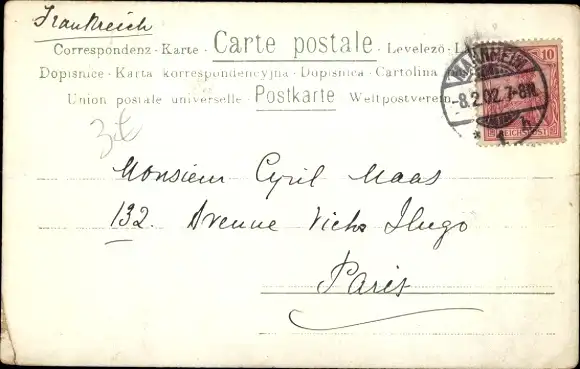 Frankreich
Correspondenz-Karte · Carte postale · Levelező-L
Dopisnice · Karta korrespondencyjna · Dopisnica · Cartolina
Union postale universelle · Postkarte Weltpostverein
10
MANNHEIM
8.2.02.7-8N.
* 1 h
REICHSPOST
Monsieur Cyril Maas
132. Avenue Victor Hugo
Paris